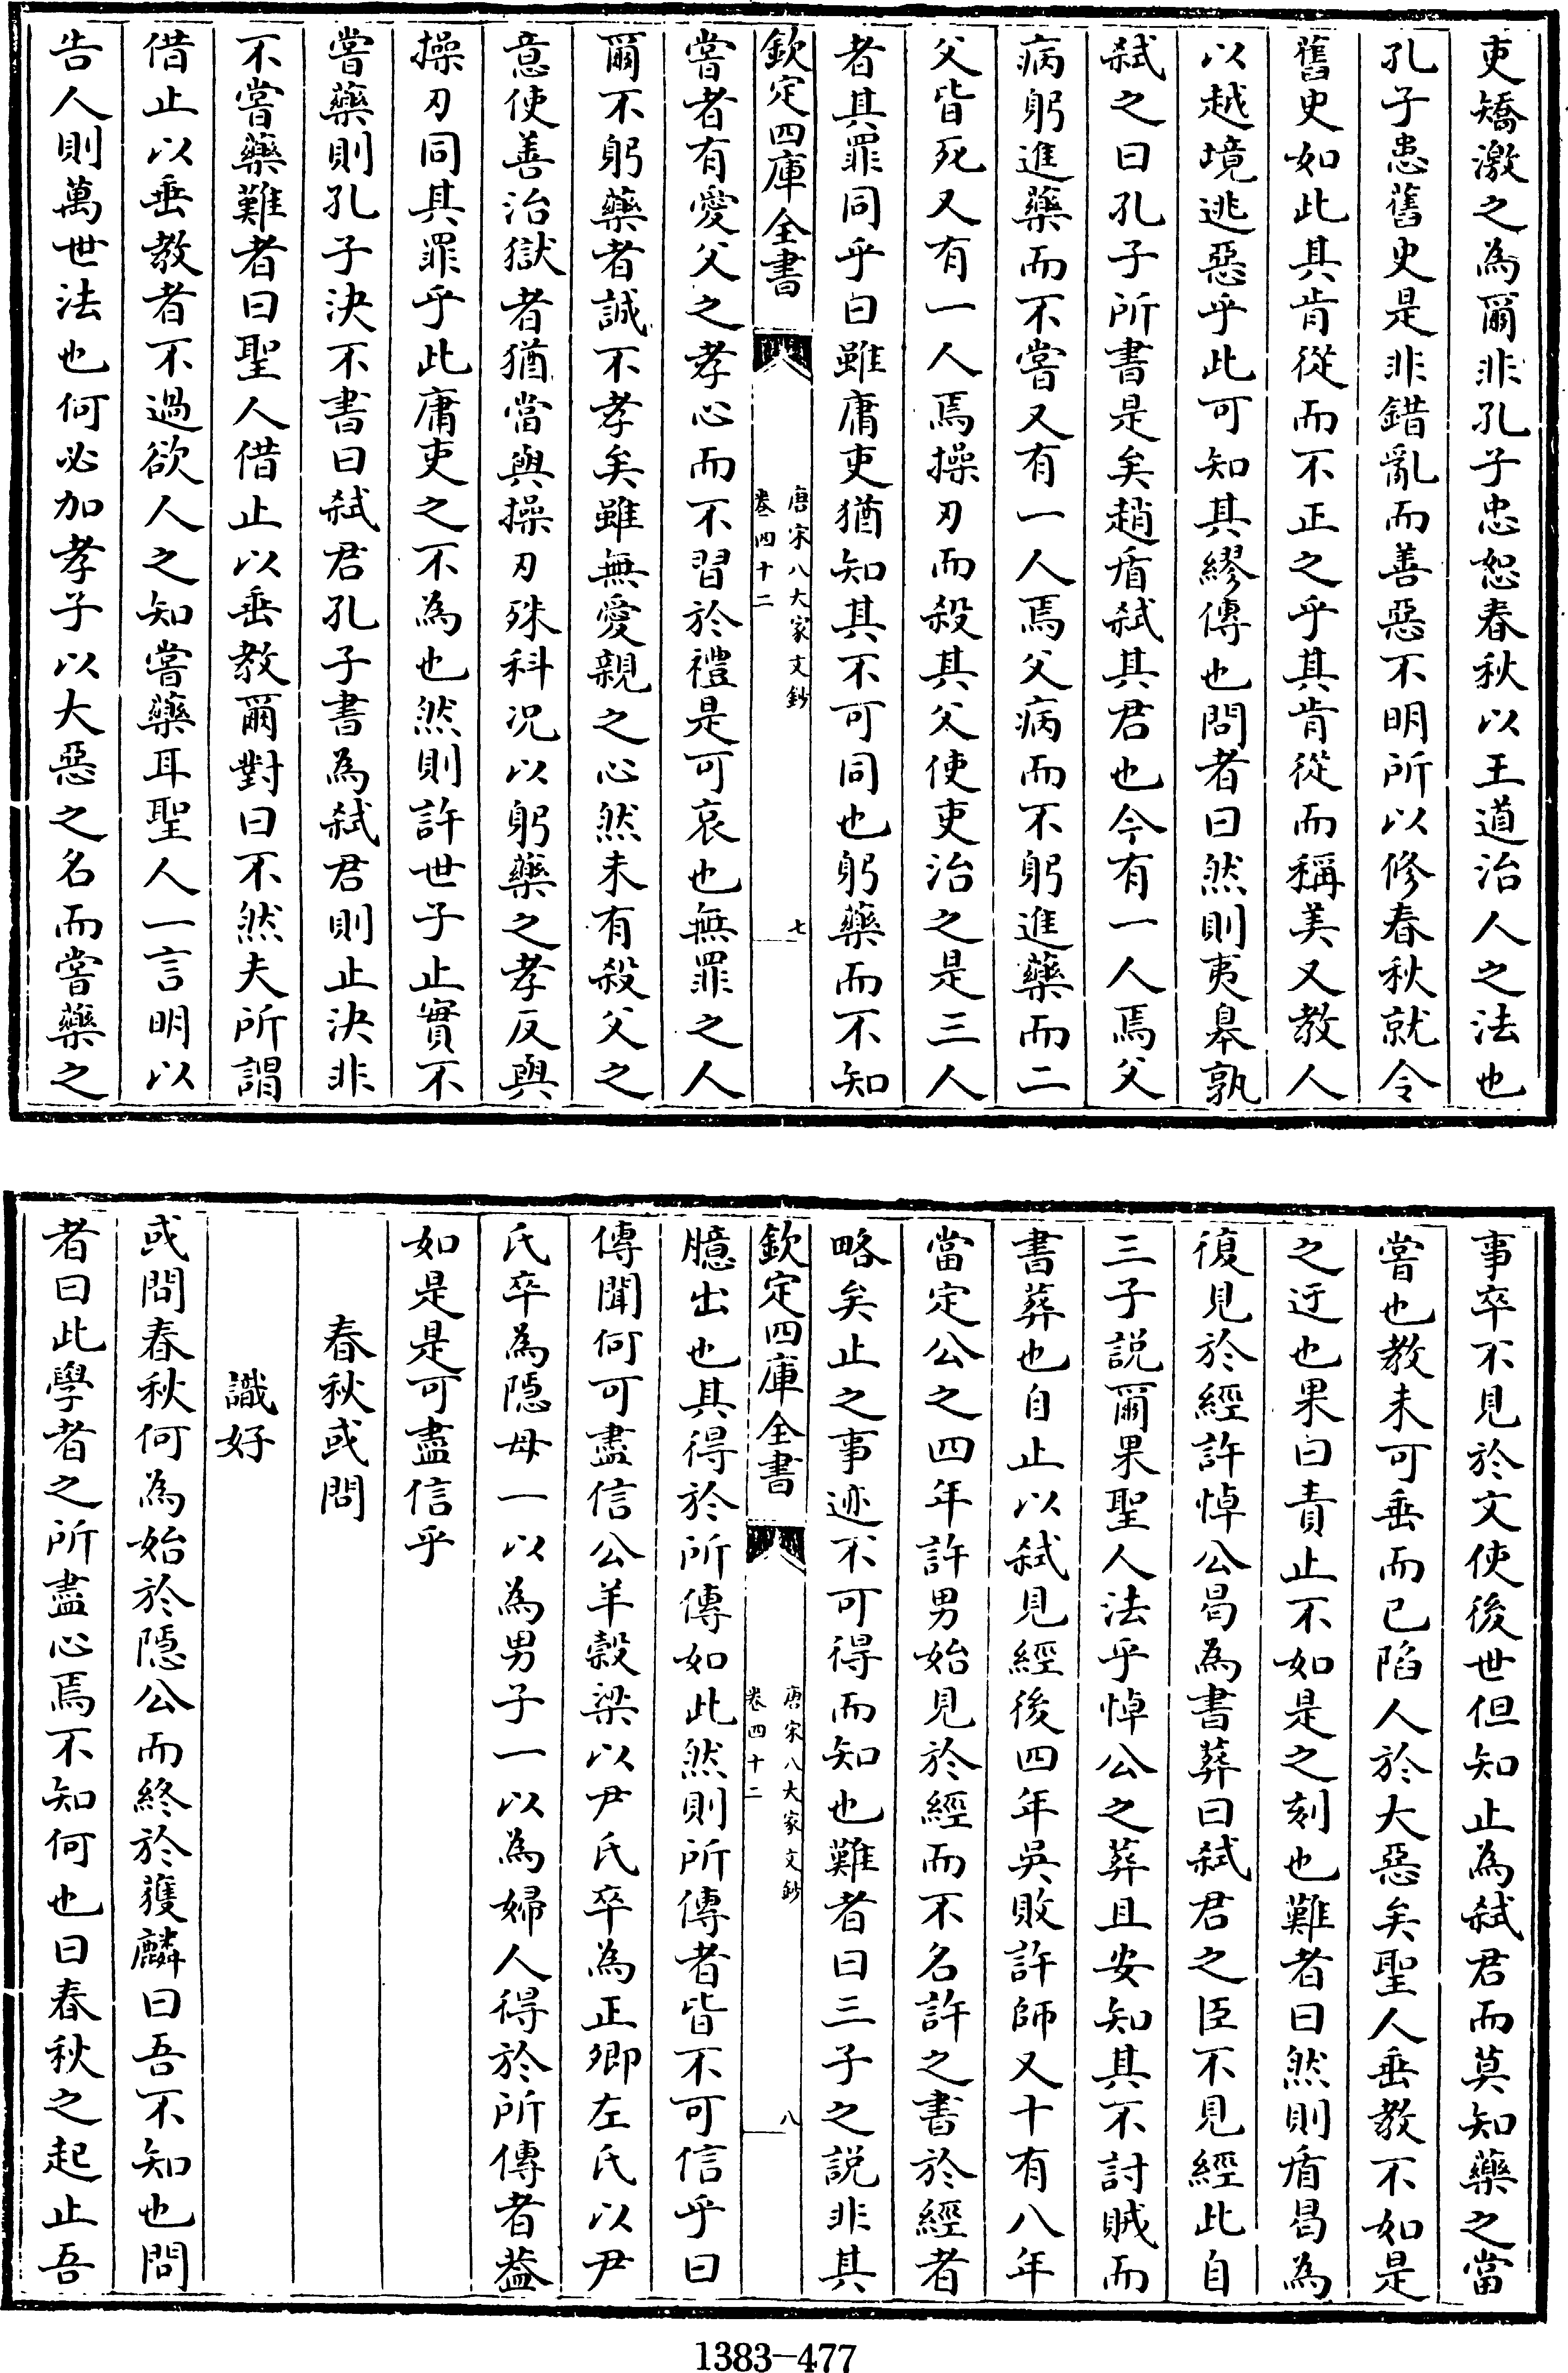 吏矯激之為爾非孔子忠恕春秋以王道治人之法也
孔子患舊史是非錯亂而善惡不明所以修春秋就令
舊史如此其肯從而不正之乎其肯從而稱美又教人
以越境逃惡乎此可知其繆傳也問者曰然則夷皋孰
弑之曰孔子所書是矣趙盾弑其君也今有一人焉父
病躬進藥而不嘗又有一人焉父病而不躬進藥而二
父皆死又有一人焉操刃而殺其父使吏治之是三人
者其罪同乎曰雖庸吏猶知其不可同也躬藥而不知
欽定四庫全書
唐宋八大家文鈔
卷四十二
七
嘗者有愛父之孝心而不習於禮是可哀也無罪之人
爾不躬藥者誠不孝矣雖無愛親之心然未有殺父之
意使善治獄者猶當與操刃殊科况以躬藥之孝反與
操刃同其罪乎此庸吏之不為也然則許世子止實不
嘗藥則孔子決不書曰弑君孔子書為弑君則止決非
不嘗藥難者曰聖人借止以垂教爾對曰不然夫所謂
借止以垂教者不過欲人之知嘗藥耳聖人一言明以
告人則萬世法也何必加孝子以大惡之名而嘗藥之
事卒不見於文使後世但知止為弑君而莫知藥之當
嘗也教未可垂而已陷人於大惡矣聖人垂教不如是
之迂也果曰責止不如是之刻也難者曰然則盾曷為
復見於經許悼公曷為書葬曰弑君之臣不見經此自
三子説爾果聖人法乎悼公之葬且安知其不討賊而
書葬也自止以弑見經後四年吳敗許師又十有八年
當定公之四年許男始見於經而不名許之書於經者
略矣止之事迹不可得而知也難者曰三子之說非其
欽定四庫全書
唐宋八大家文鈔
卷四十二
八
臆出也其得於所傳如此然則所傳者皆不可信乎曰
傳聞何可盡信公羊榖梁以尹氏卒為正卿左氏以尹
氏卒為隱母一以為男子一以為婦人得於所傳者葢
如是是可盡信乎
春秋或問
識好
或問春秋何為始於隱公而終於獲麟曰吾不知也問
者曰此學者之所盡心焉不知何也曰春秋之起止吾
1383-477